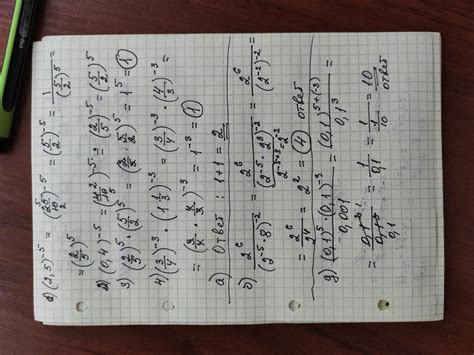 1) (2,5)^-5 = (25/10)^-5 = (5/2)^-5 = 1/(5/2)^5 =
= (2/5)^5
2) (0,4)^-5 = (4/10)^-5 = (2/5)^-5 = (5/2)^5
3) (2/5)^5 · (5/2)^5 = (2/5 · 5/2)^5 = 1^5 = 1
4) (3/4)^-3 · (1 1/3)^-3 = (3/4)^-3 · (4/3)^-3 =
= (3/4 · 4/3)^-3 = 1^-3 = 1
а) Ответ: 1+1 = 2
б) 2^6/(2^-5 · 8)^-2 = 2^6/(2^-5 · 2^3)^-2 = 2^6/(2^-2)^-2
2^-5+3 = 2^-2
= 2^6/2^4 = 2^2 = 4 ответ
д) (0,1)^5 · (0,1)^-3 / 0,001 = (0,1)^5+(-3) / 0,1^3
= 1/0,1 = 1/(1/10) = 10
0,1
ответ